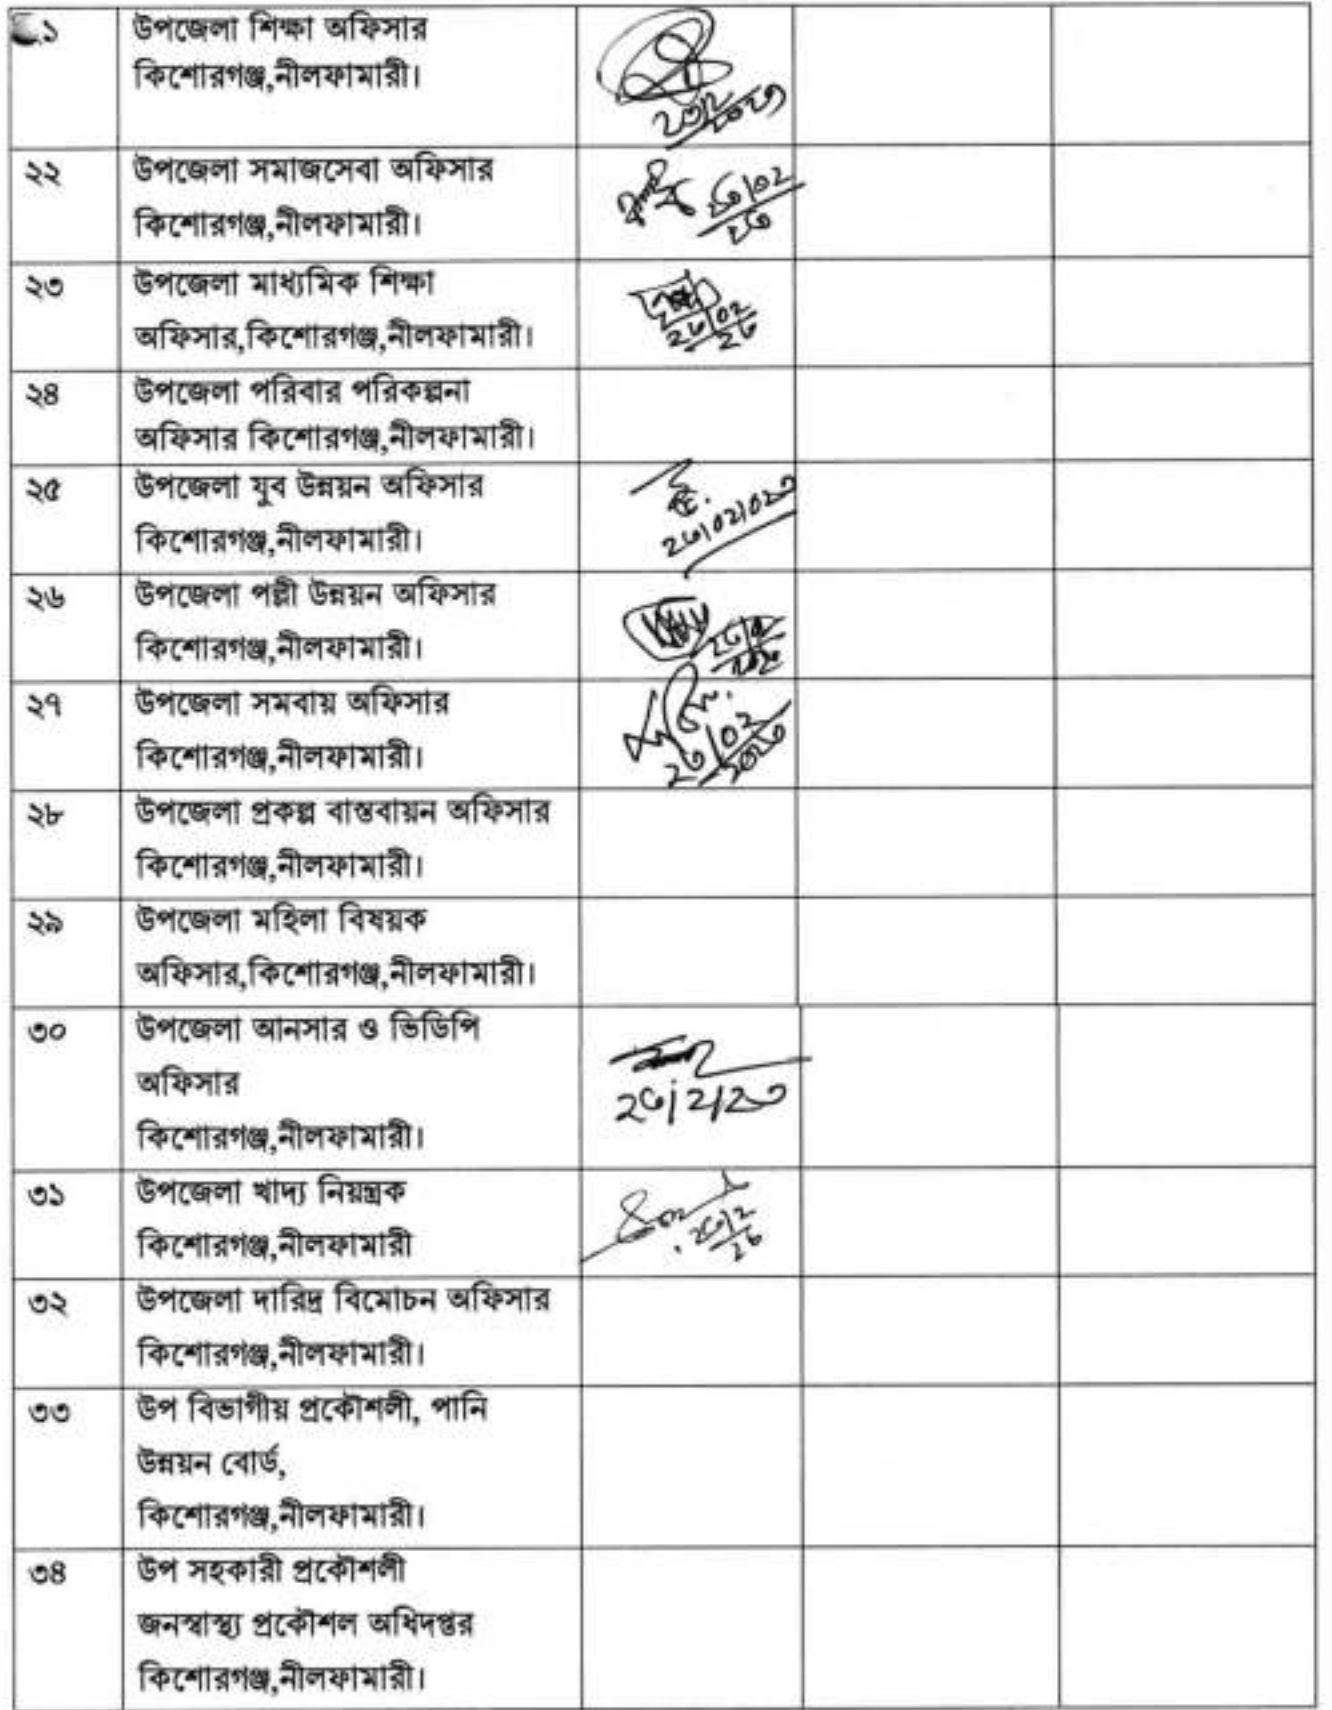 ১
উপজেলা শিক্ষা অফিসার
কিশোরগঞ্জ,নীলফামারী।
২২
উপজেলা সমাজসেবা অফিসার
কিশোরগঞ্জ,নীলফামারী।
২৩
উপজেলা মাধ্যমিক শিক্ষা
অফিসার,কিশোরগঞ্জ,নীলফামারী।
২৪
উপজেলা পরিবার পরিকল্পনা
অফিসার কিশোরগঞ্জ,নীলফামারী।
২৫
উপজেলা যুব উন্নয়ন অফিসার
কিশোরগঞ্জ,নীলফামারী।
২৬
উপজেলা পল্লী উন্নয়ন অফিসার
কিশোরগঞ্জ,নীলফামারী।
২৭
উপজেলা সমবায় অফিসার
কিশোরগঞ্জ,নীলফামারী।
২৮
উপজেলা প্রকল্প বাস্তবায়ন অফিসার
কিশোরগঞ্জ,নীলফামারী।
২৯
উপজেলা মহিলা বিষয়ক
অফিসার,কিশোরগঞ্জ,নীলফামারী।
৩০
উপজেলা আনসার ও ভিডিপি
অফিসার
কিশোরগঞ্জ,নীলফামারী।
৩১
উপজেলা খাদ্য নিয়ন্ত্রক
কিশোরগঞ্জ,নীলফামারী
৩২
উপজেলা দারিদ্র বিমোচন অফিসার
কিশোরগঞ্জ,নীলফামারী।
৩৩
উপ বিভাগীয় প্রকৌশলী, পানি
উন্নয়ন বোর্ড,
কিশোরগঞ্জ,নীলফামারী।
৩৪
উপ সহকারী প্রকৌশলী
জনস্বাস্থ্য প্রকৌশল অধিদপ্তর
কিশোরগঞ্জ,নীলফামারী।